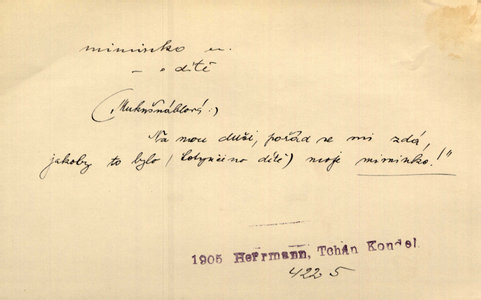 miminko n.
– o dítě
(Muknšnáblová:)
Na mou duši, pořád se mi zdá,
jakoby to bylo (Lotynčino dítě) moje miminko!"
1905 Herrmann, Tchán Kondel
422 5